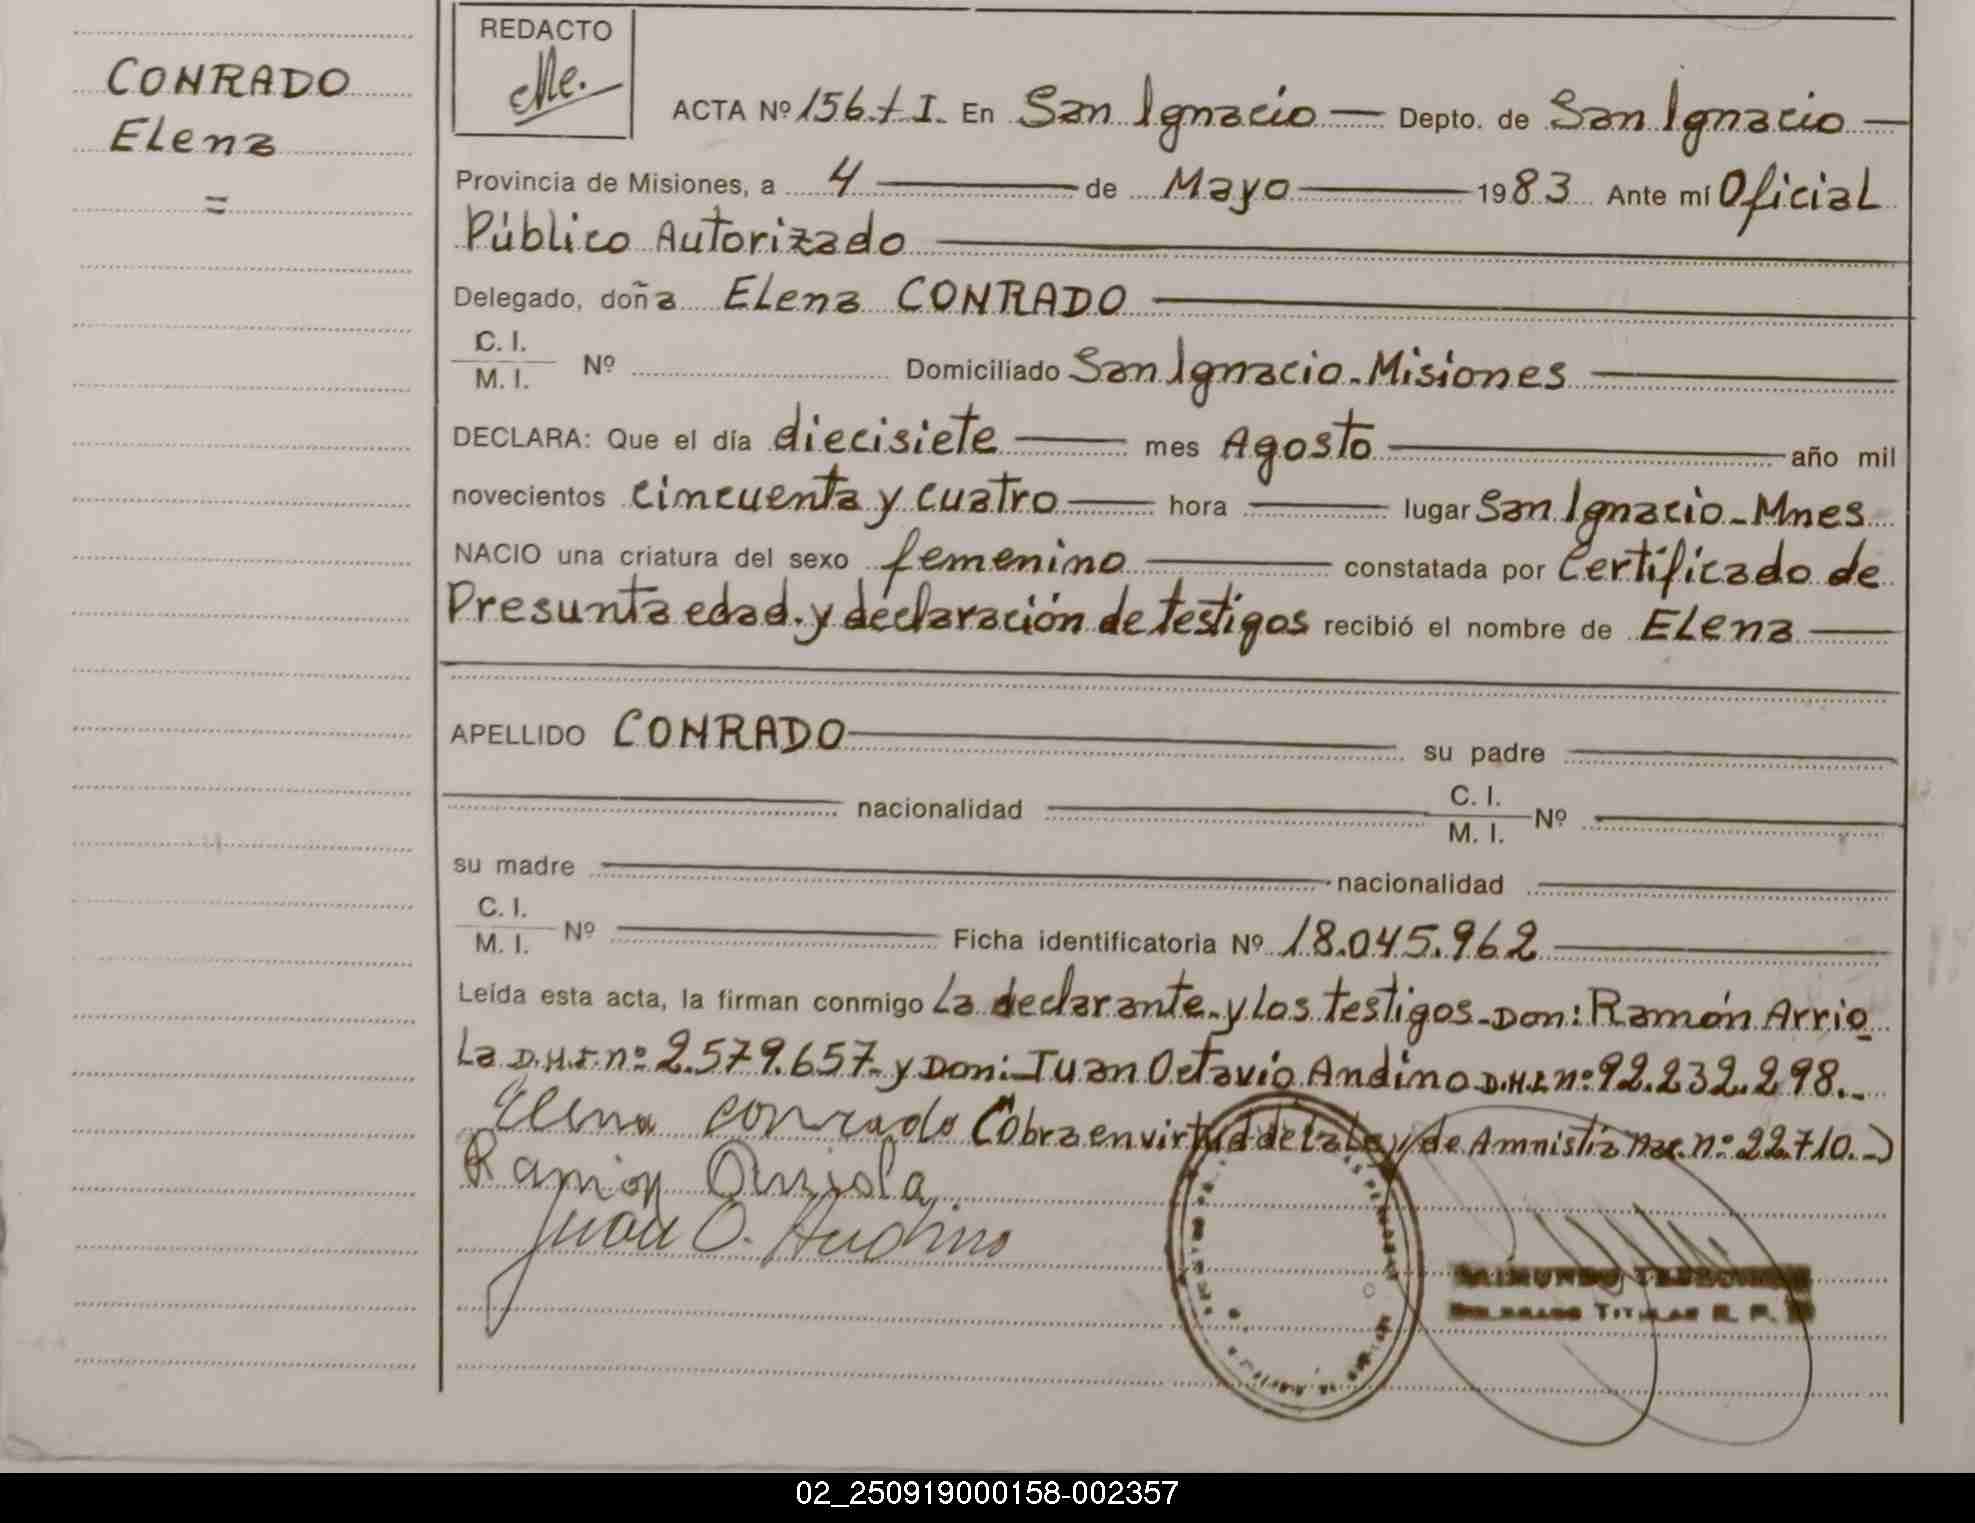 CONRADO
Elena
=
REDACTO
Me.
ACTA Nº 156.t I. En San Ignacio — Depto. de San Ignacio —
Provincia de Misiones, a 4 — de Mayo — 1983 Ante mí Oficial
Público Autorizado
Delegado, doña Elena CONRADO
C. I.
M. I. Nº Domiciliado San Ignacio - Misiones
DECLARA: Que el día diecisiete — mes Agosto — año mil
novecientos cincuenta y cuatro — hora — lugar San Ignacio - Mnes
NACIO una criatura del sexo femenino — constatada por Certificado de
Presunta edad. y declaración de testigos recibió el nombre de ELena —
APELLIDO CONRADO — su padre —
— nacionalidad — C. I. M. I. Nº —
su madre — nacionalidad —
C. I.
M. I. Nº — Ficha identificatoria Nº 18.045.962 —
Leída esta acta, la firman conmigo La declarante - y Los testigos - Don: Ramón Arrio
La D.N.I. nº 2.579.657 - y Don: Juan Octavio Andino D.N.I. nº 92.232.298. -
Elena conrado (Obra en virtud de la Ley de Amnistia Nac. nº 22.710. -)
Ramón Arriola
Juan O. Andino
RAIMUNDO
DELEGADO TITULAR R. P.
02_250919000158-002357